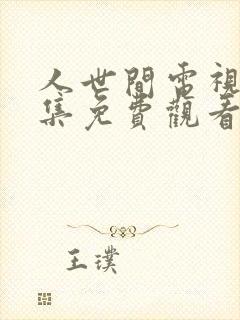 人世間電視
集免費觀看
王璞